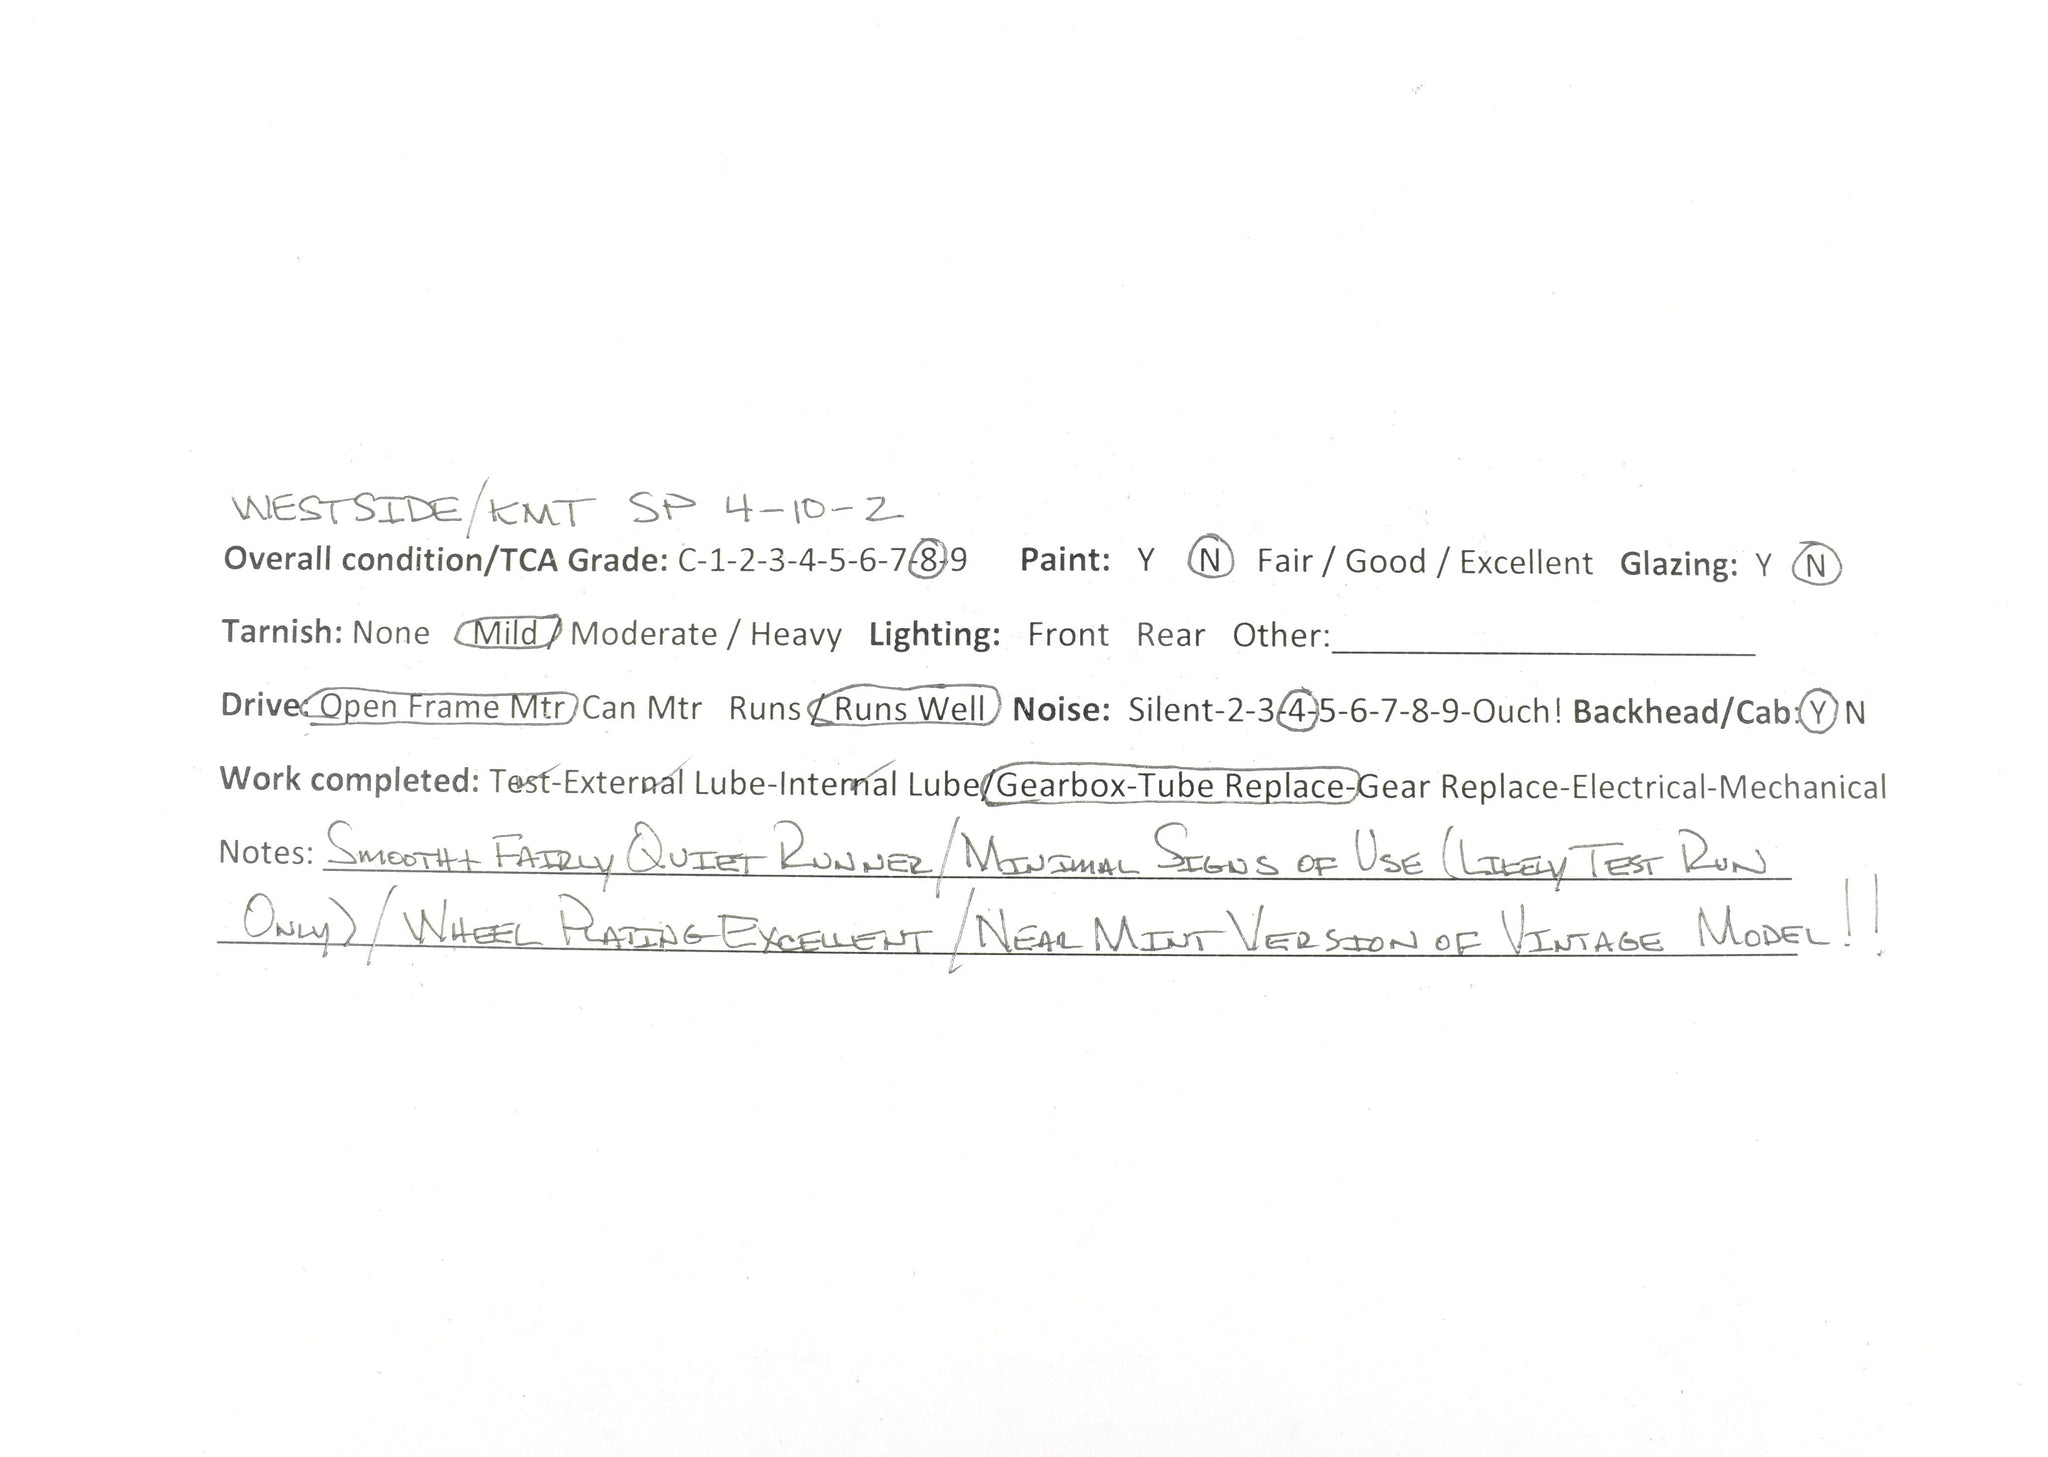 WESTSIDE/KMT SP 4-10-2
Overall condition/TCA Grade: C-1-2-3-4-5-6-7-8-9 Paint: Y N Fair / Good / Excellent Glazing: Y N
Tarnish: None Mild / Moderate / Heavy Lighting: Front Rear Other:
Drive: Open Frame Mtr Can Mtr Runs / Runs Well Noise: Silent-2-3-4-5-6-7-8-9-Ouch! Backhead/Cab: Y N
Work completed: Test-External Lube-Internal Lube/Gearbox-Tube Replace-Gear Replace-Electrical-Mechanical
Notes: SMOOTH + FAIRLY QUIET RUNNER / MINIMAL SIGNS OF USE (LIKELY TEST RUN
ONLY) / WHEEL PLATING EXCELLENT / NEAR MINT VERSION OF VINTAGE MODEL!!